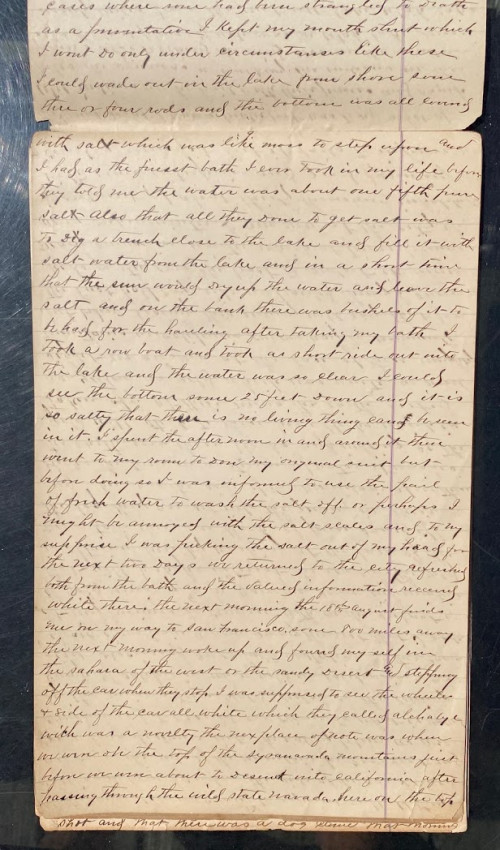 cases where some had been strangled to Death
as a preventative I kept my mouth shut which
I wont Do only under circumstances like these
I could wade out in the lake from shore some
three or four rods and the bottom was all covered
with salt which was like moss to step upon and
I had as the finest bath I ever took in my life before
they told me the water was about one fifth pure
salt Also that all they Done to get salt was
to Dig a trench close to the lake and fill it with
salt water from the lake and in a short time
that the sun would Dry up the water and leave the
salt and on the bank there was bushels of it to
be had for the hauling after taking my bath I
took a row boat and took as short ride out into
the lake and the water was so clear I could
see the bottom some 25 feet Down and it is
so salty that there is no living thing can be seen
in it. I spent the afternoon in and around it then
went to my room to Don my original suit but
before doing so I was informed to use the pail
of fresh water to wash the salt off or perhaps I
might be annoyed with the salt scales and to my
supprise I was picking the salt out of my head for
the next two Days we returned to the city refreshed
both from the bath and the valued information received
while there. the next morning the 18th august finds
me on my way to San Francisco, some 800 miles away
the next morning woke up and found my self in
the sahara of the west or the sandy Desert and stepping
off the car when they stop I was supprised to see the wheels
& side of the car all white which they called alchalye
with was a novelty the next place of note was when
we were on the top of the mountains just
before we were about to Desend into california after
passing through the wild state navada here on the top
shot and that there was a dog that morning